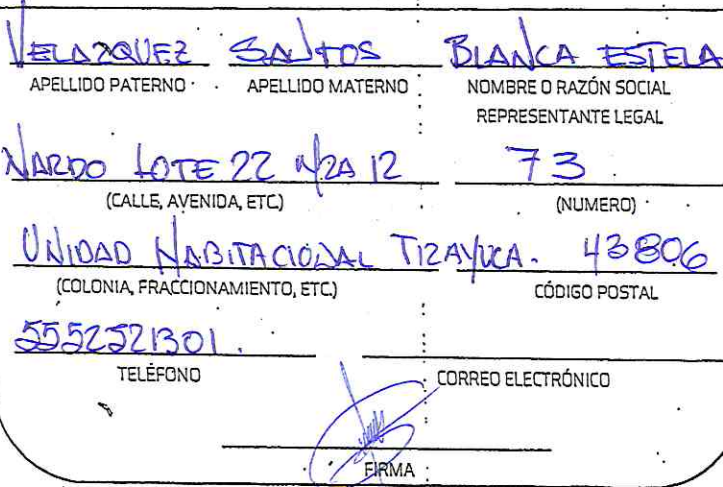 VELAZQUEZ SANTOS BLANCA ESTELA
APELLIDO PATERNO APELLIDO MATERNO NOMBRE O RAZÓN SOCIAL
REPRESENTANTE LEGAL
NARDO LOTE 22 MZA 12 73
(CALLE, AVENIDA, ETC) (NUMERO)
UNIDAD HABITACIONAL TIZAYUCA. 43806
(COLONIA, FRACCIONAMIENTO, ETC.) CÓDIGO POSTAL
5552521301.
TELÉFONO CORREO ELECTRÓNICO
FIRMA